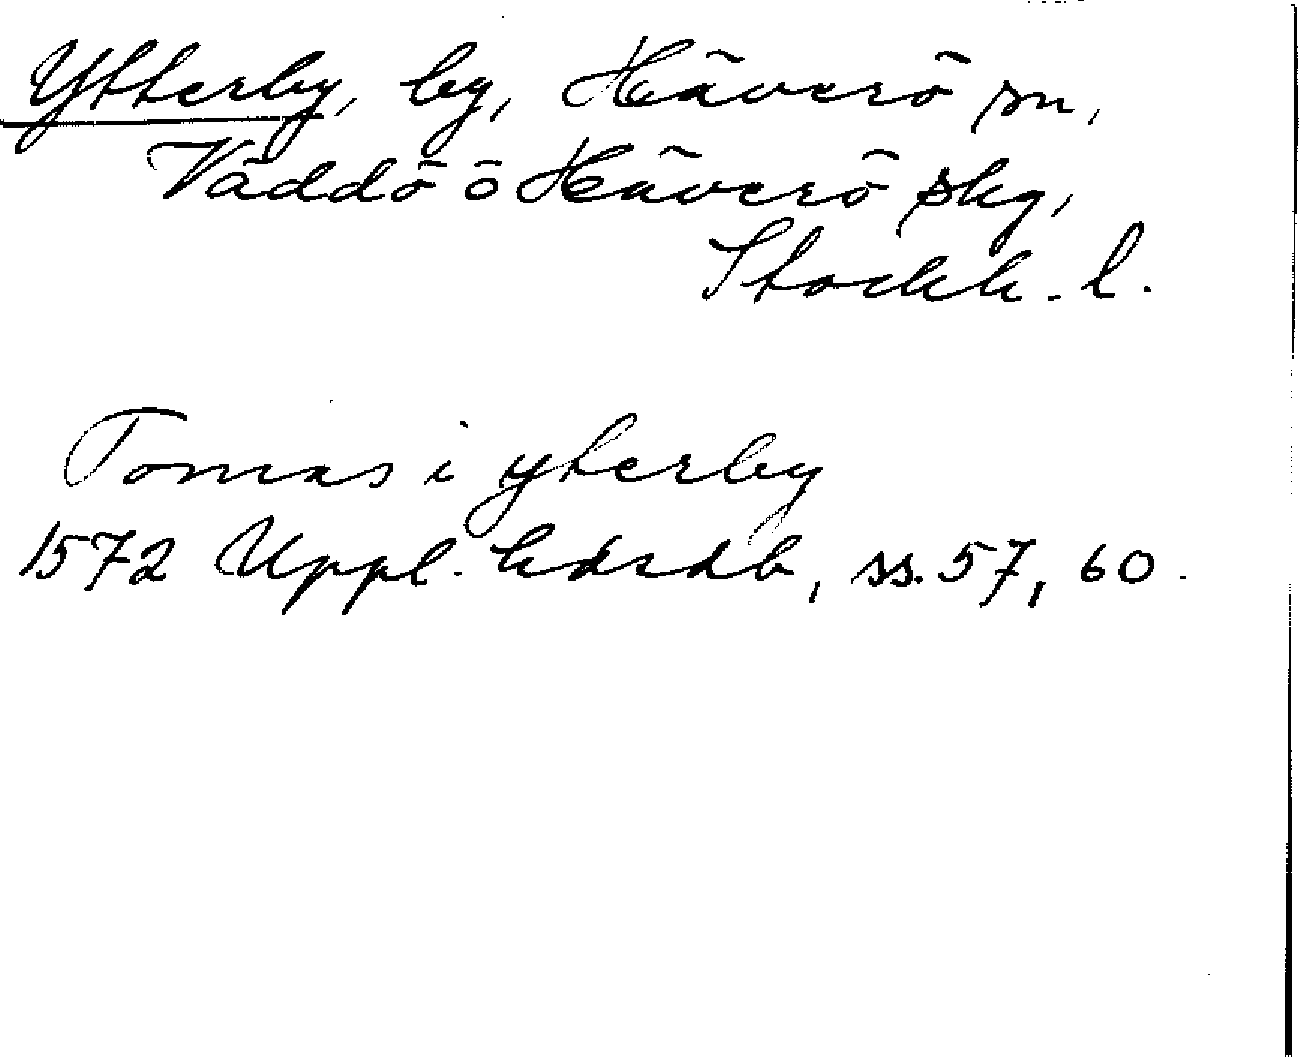 Ytterby, by, Häverö sn,
Väddö o Häverö skg,
Stockh. l.
Tomas i yterby
1572 Uppl. hdrdb, ss. 57, 60.